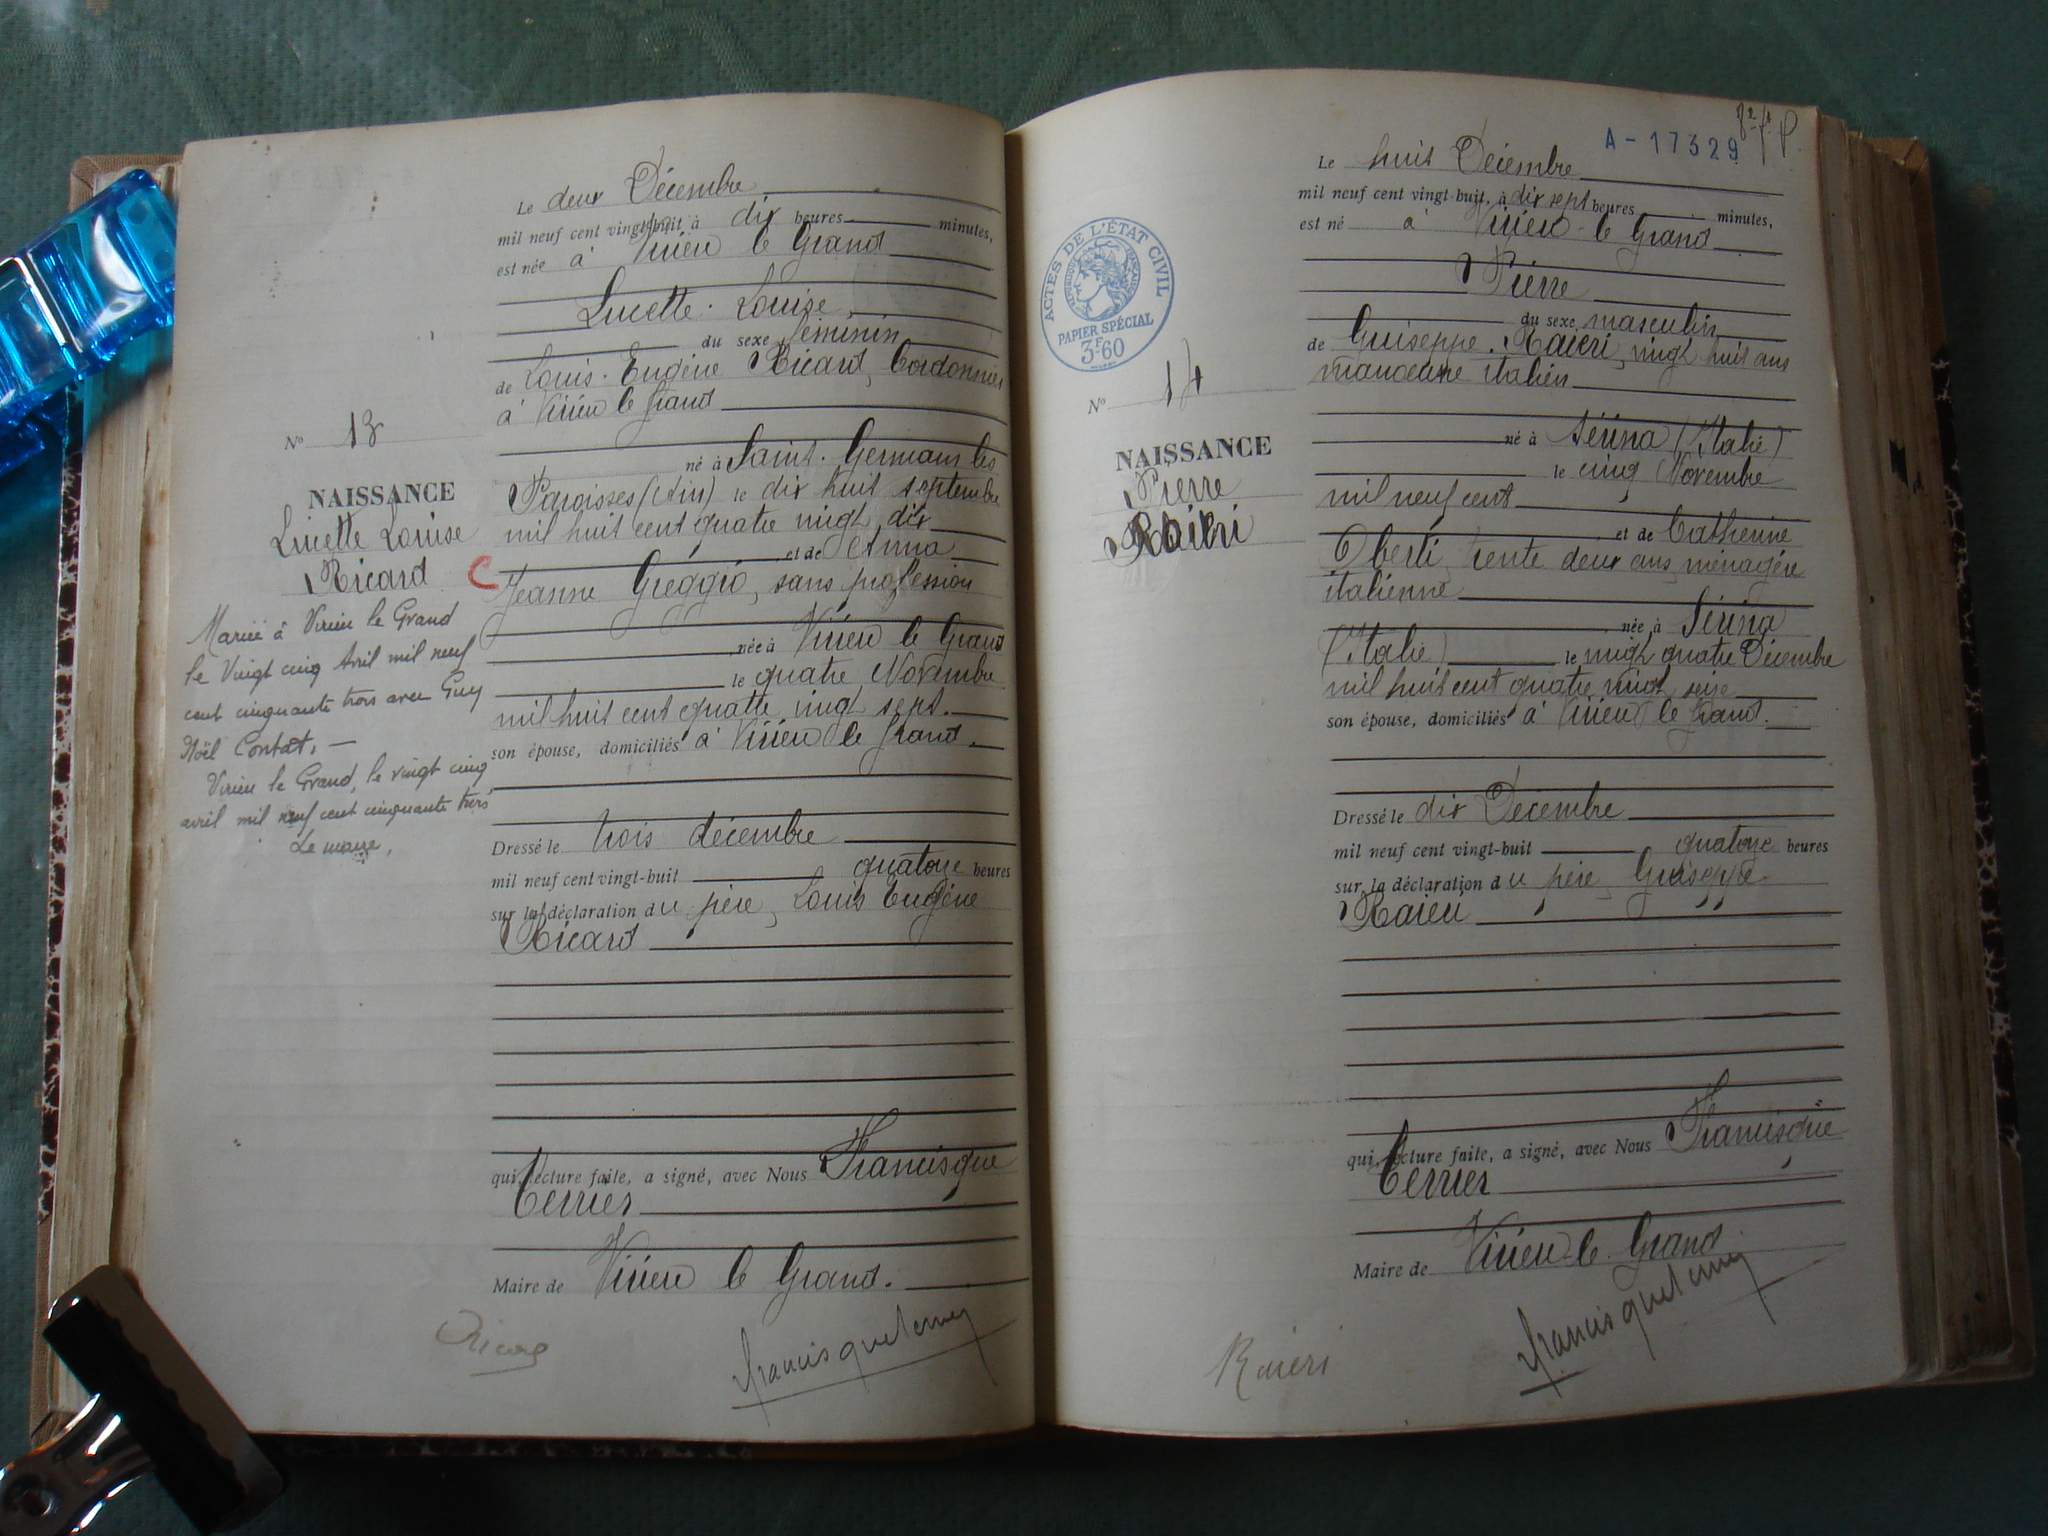 Le deux Décembre
mil neuf cent vingt-huit à dix heures minutes,
est née à Virieu le Grand
Lucette. Louise
du sexe féminin
de Louis. Eugène Ricard, Cordonnier
à Virieu le Grand
né à Saint. Germain les
Paroisses (Ain) le dix huit septembre
mil huit cent quatre vingt dix
et de Anna
Jeanne Greggio, sans profession
née à Virieu le Grand
le quatre Novembre
mil huit cent quatre vingt sept.
son épouse, domiciliés à Virieu le Grand.
Dressé le trois décembre
mil neuf cent vingt-huit quatorze heures
sur la déclaration du père, Louis Eugène
Ricard
qui, lecture faite, a signé, avec Nous Francisque
Terrier
Maire de Virieu le Grand.
Ricard
Francisque Terrier
N° 13
NAISSANCE
Lucette Louise
Ricard
C
Mariée à Virieu le Grand
le Vingt cinq Avril mil neuf
cent cinquante trois avec Guy
Noël Contat. —
Virieu le Grand, le vingt cinq
avril mil neuf cent cinquante trois
Le maire,
A-17329
Le huit Décembre
mil neuf cent vingt-huit, à dix sept heures minutes,
est né à Virieu-le Grand
Pierre
du sexe masculin
de Guiseppe. Raieri, vingt huit ans
manoeuvre italien
né à Sérina (Italie)
le cinq Novembre
mil neuf cent
et de Catherine
Oberti, trente deux ans, ménagère
italienne
née à Sérina
(Italie) le vingt quatre Décembre
mil huit cent quatre vingt seize
son épouse, domiciliés à Virieu le Grand.
Dressé le dix Décembre
mil neuf cent vingt-huit quatorze heures
sur la déclaration du père, Guiseppe
Raieri
qui, lecture faite, a signé, avec Nous Francisque
Terrier
Maire de Virieu-le Grand
Raieri
Francisque Terrier
ACTES DE L'ÉTAT CIVIL
PAPIER SPÉCIAL
3F60
N° 14
NAISSANCE
Pierre
Raieri